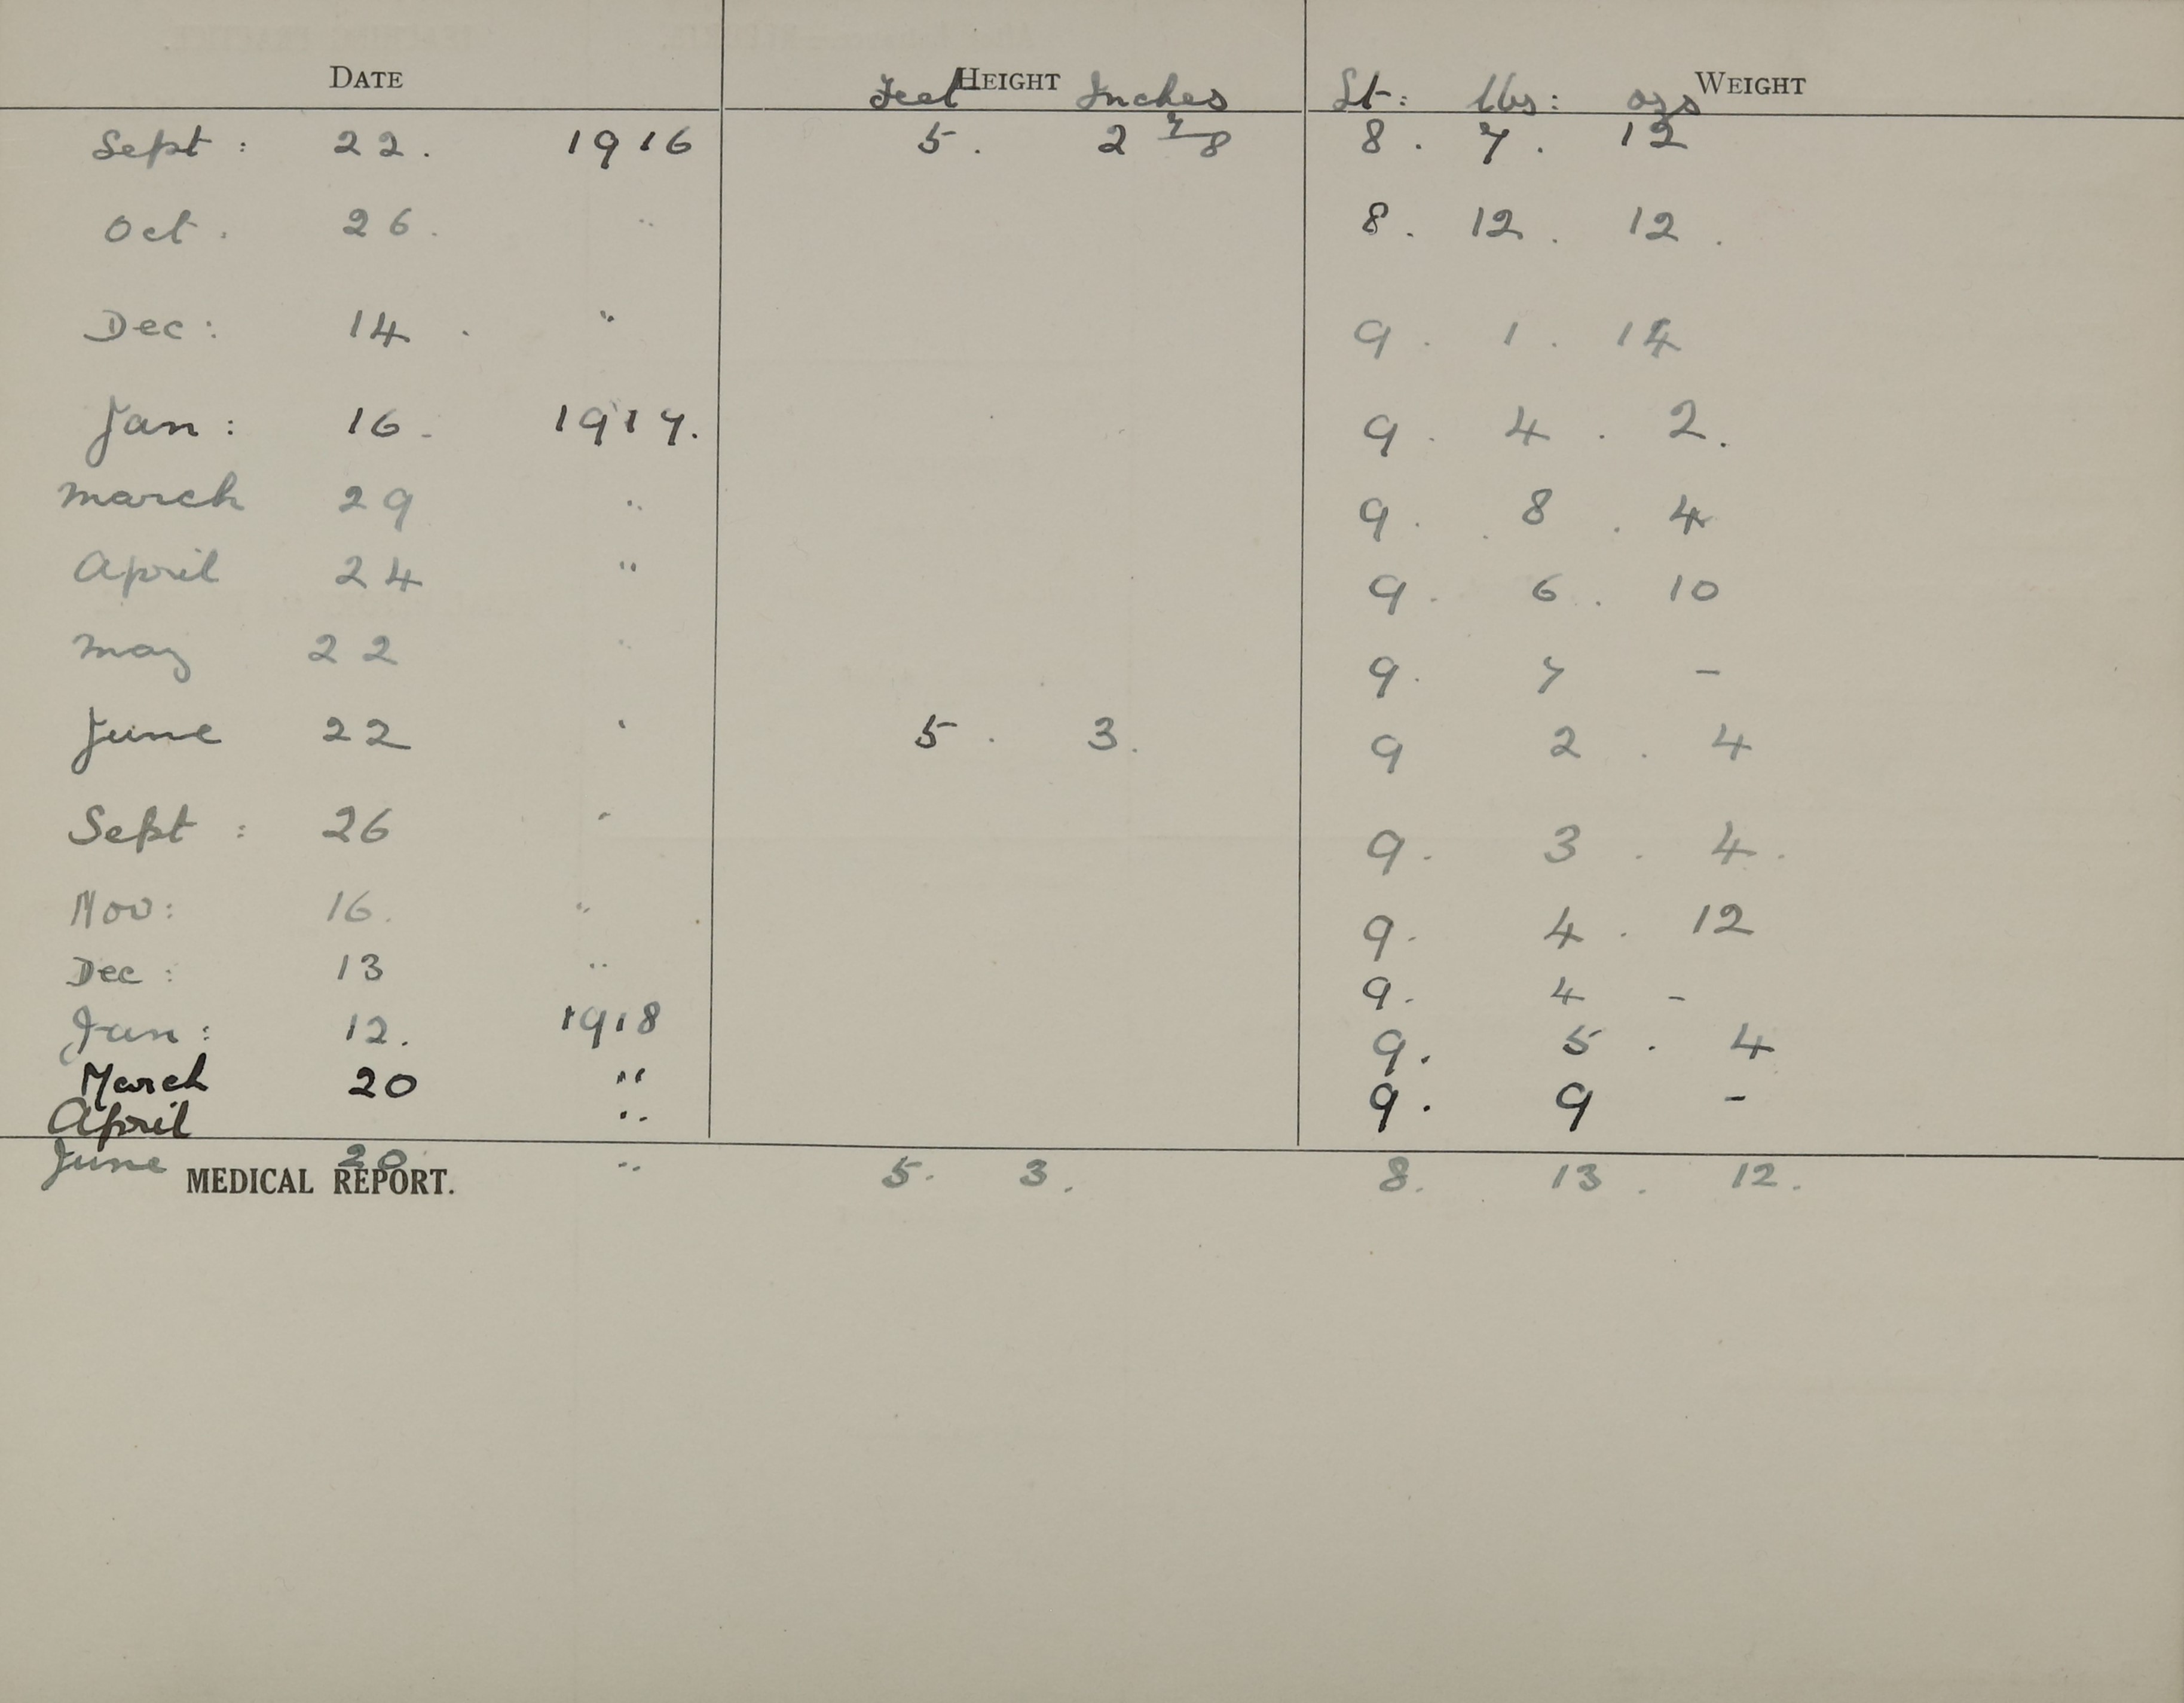 DATE HEIGHT WEIGHT
Feet Inches St: lbs: ozs
Sept: 22. 1916 5. 2 7/8 8. 7. 12
Oct. 26. " 8. 12. 12.
Dec: 14. " 9. 1. 14
Jan: 16. 1917. 9. 4. 2.
March 29 " 9. 8. 4
April 24 " 9. 6. 10
May 22 " 9. 7 -
June 22 " 5. 3. 9 2. 4
Sept: 26 " 9. 3. 4.
Nov: 16. " 9. 4. 12
Dec: 13 " 9. 4 -
Jan: 12. 1918 9. 5. 4
March 20 " 9. 9 -
April "
June 20 " 5. 3. 8. 13. 12.
MEDICAL REPORT.